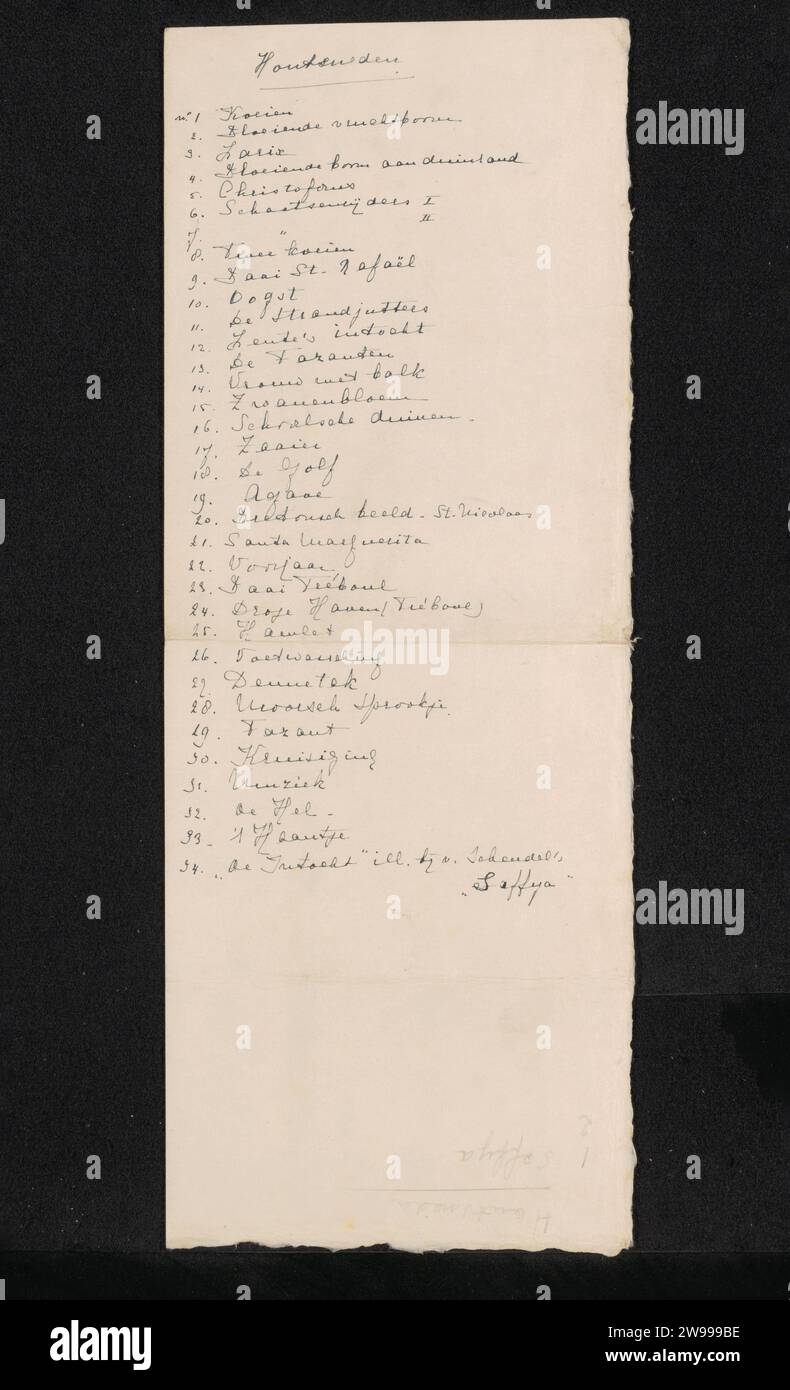 Houtsneden
No 1 Koeien
2. Bloeiende vruchtboom
3. Larix
4. Bloeiende boom aan duinrand
5. Christoforus
6. Schaatsenrijders I
7. " II
8. Twee koeien
9. Baai St. Rafaël
10. Oogst
11. De Strandjutters
12. Lente's intocht
13. De Fazanten
14. Vrouw met balk
15. Zwanenbloem
16. Schoolsche duinen.
17. Zaaier
18. De Golf
19. Agave
20. Bretonsch beeld - St. Nicolaas
21. Santa Marguerita
22. Voorjaar
23. Baai Tréboul
24. Droge Haven (Tréboul)
25. Hamlet
26. Voetwassching
27. Dennetak
28. Moorsch Sprookje.
29. Fazant
30. Kruisiging
31. Muziek
32. De Hel -
33 - 't Haantje
34. „De Intocht" ill. bij v. Schendel's
„Saffya"
2
1 Saffya
Houtsnede
alamy
Image ID: 2W999BE
www.alamy.com